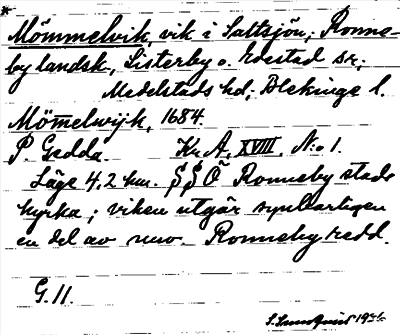 Mömmelvik, vik i Saltsjön, Ronne-
by landsk., Listerby o. Edestad sr,
Medelstads hd, Blekinge l.
Mömelwijk, 1684.
P. Gedda. Kr. A. XVIII. N:o 1.
Läge 4,2 km. SSÖ Ronneby stads
kyrka; viken utgör synbarligen
en del av nuv. Ronneby redd.
G. 11.